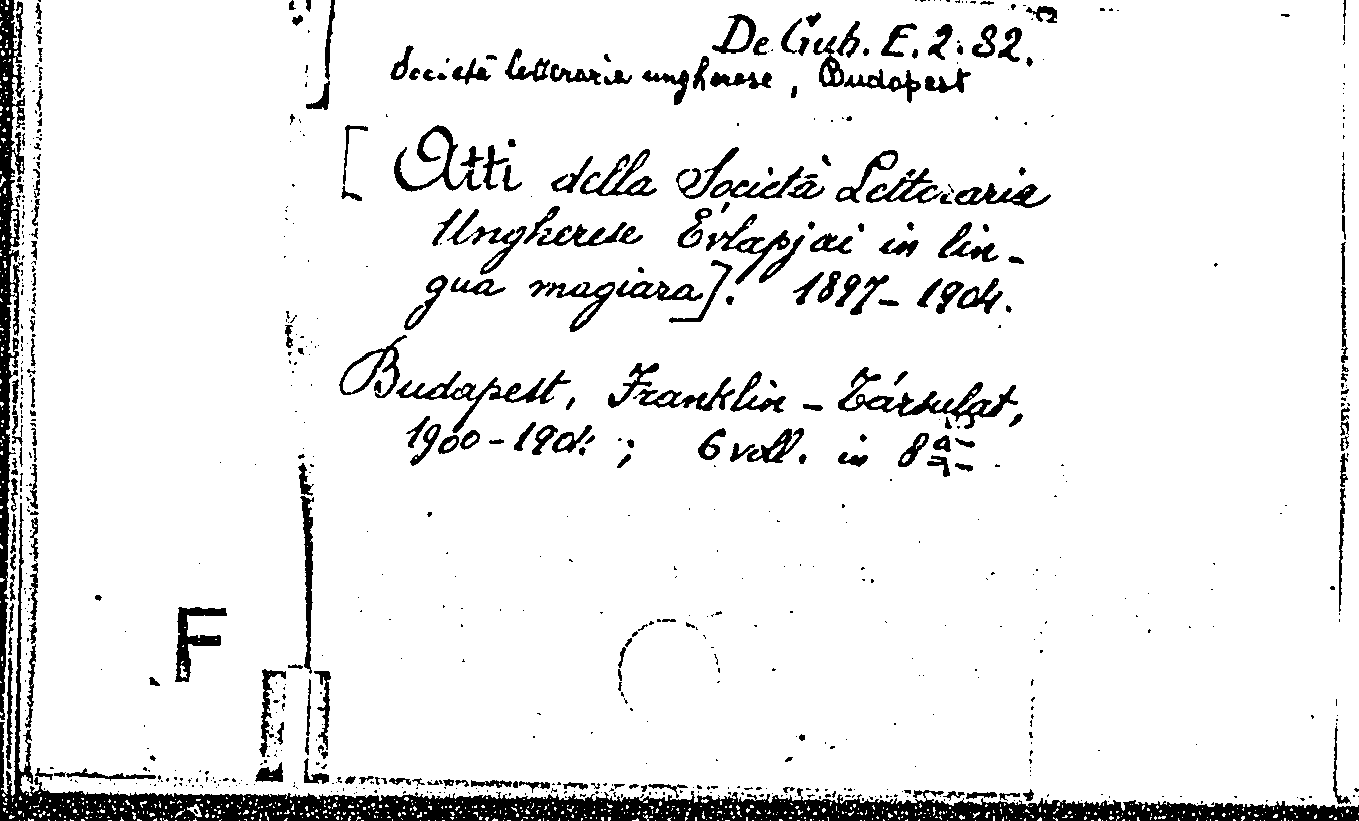 De Gub. E. 2. 82.
Società letteraria ungherese, Budapest
[Atti della Società Letteraria
Ungherese Évlapjai in lin-
gua magiara]. 1897-1904.
Budapest, Franklin-Társulat,
1900-1904. ; 6 voll. in 8
F